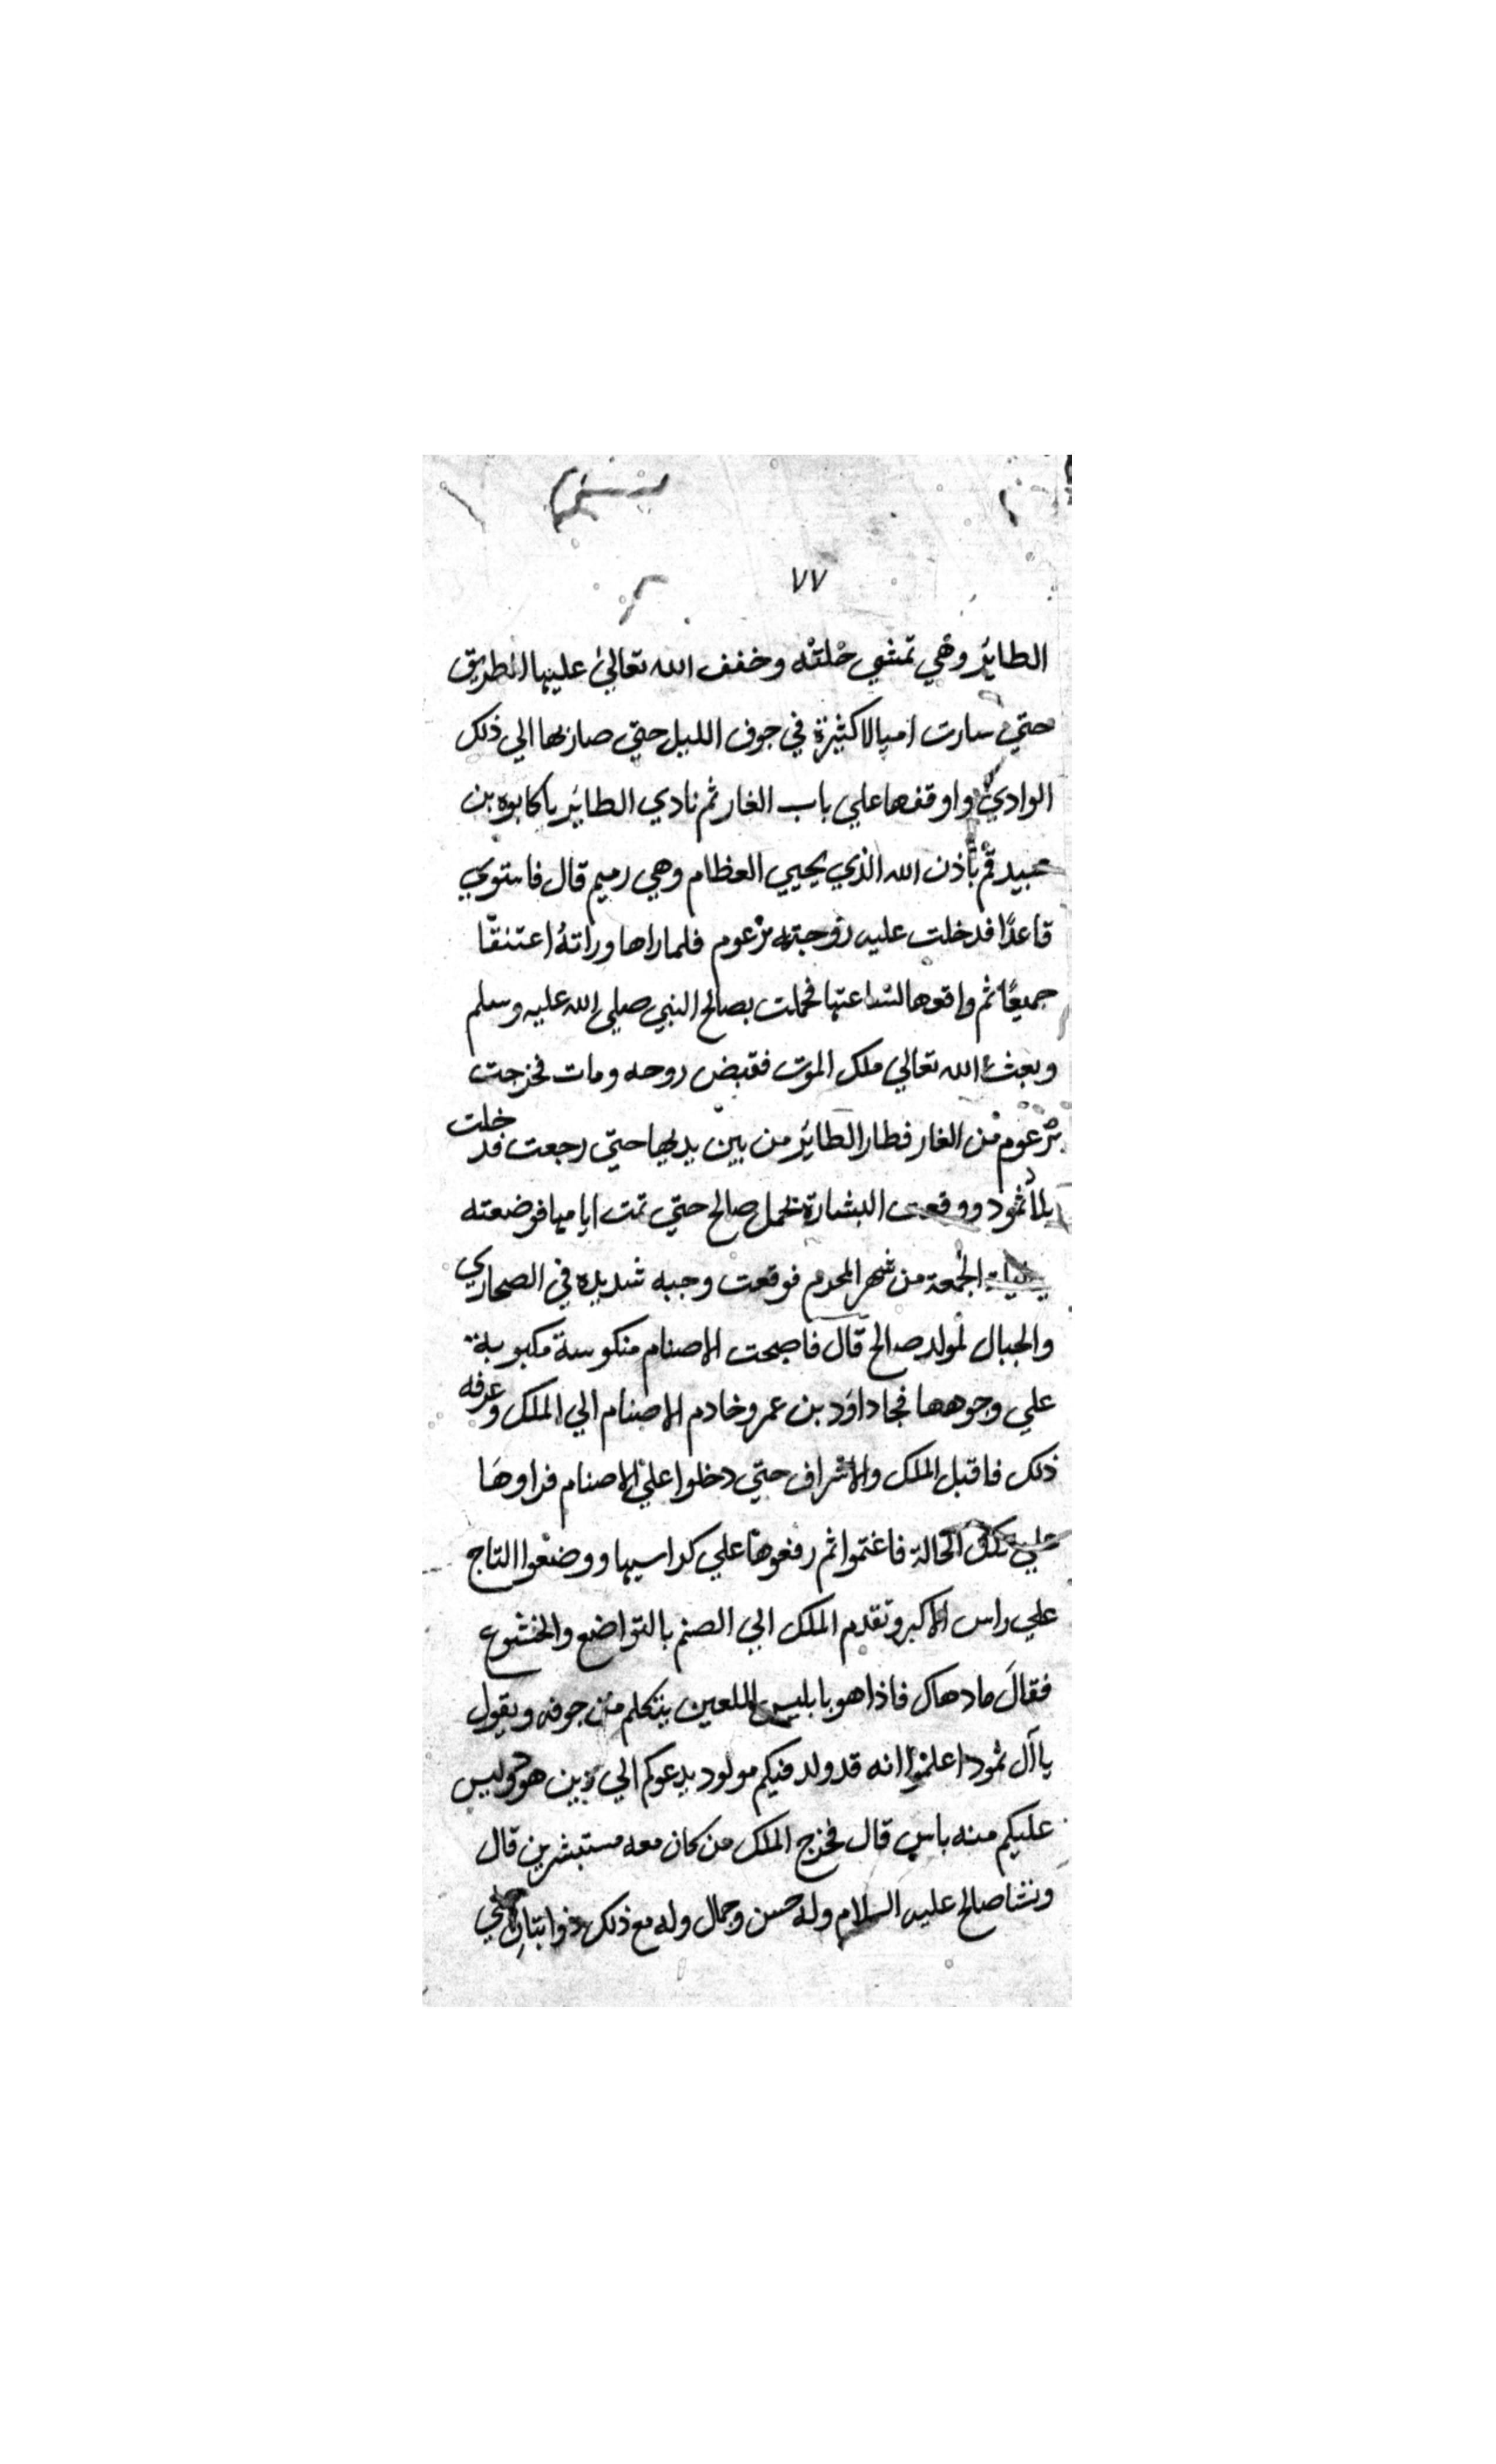 ٧٧
الطائر وهي تمشي خلفه وخفف الله تعالي عليها الطريق
حتي سارت اميالا كثيرة في جوف الليل حتي صار بها الي ذلك
الوادي واوقفها علي باب الغار ثم نادي الطائر يا كابوه بن
عبيد قم بأذن الله الذي يحيي العظام وهي رميم قال فاستوي
قاعدًا فدخلت عليه زوجته برعوم فلما راها وراته اعتنقا
جميعًا ثم واقعها لساعتها فحملت بصالح النبي صلي الله عليه وسلم
وبعث الله تعالي ملك الموت فقبض روحه ومات فخرجت
برعوم من الغار فطار الطائر من بين يديها حتي رجعت فدخلت
بلاد ثمود ووقعت البشارة بحمل صالح حتي تمت ايامها فوضعته
الجمعة من شهر المحرم فوقعت وجبه شديده في الصحاري
والجبال لمولد صالح قال فاصبحت الاصنام منكوسة مكبوبة
علي وجوهها فجا داود بن عمرو خادم الاصنام الي الملك وعرفه
ذلك فاقبل الملك والاشراف حتي دخلوا علي الاصنام فراوها
علي تلك الحالة فاغتموا ثم رفعوها علي كراسيها ووضعوا التاج
علي راس الاكبر وتقدم الملك الي الصنم بالتواضع والخشوع
فقال ما دهاك فاذا هو بابليس اللعين يتكلم من جوفه ويقول
يا آل ثمود اعلموا انه قد ولد فيكم مولود يدعوكم الي دين هود وليس
عليكم منه باس قال فخرج الملك من كان معه مستبشرين قال
ونشا صالح عليه السلام وله حسن وجمال وله مع ذلك ذوابتان علي